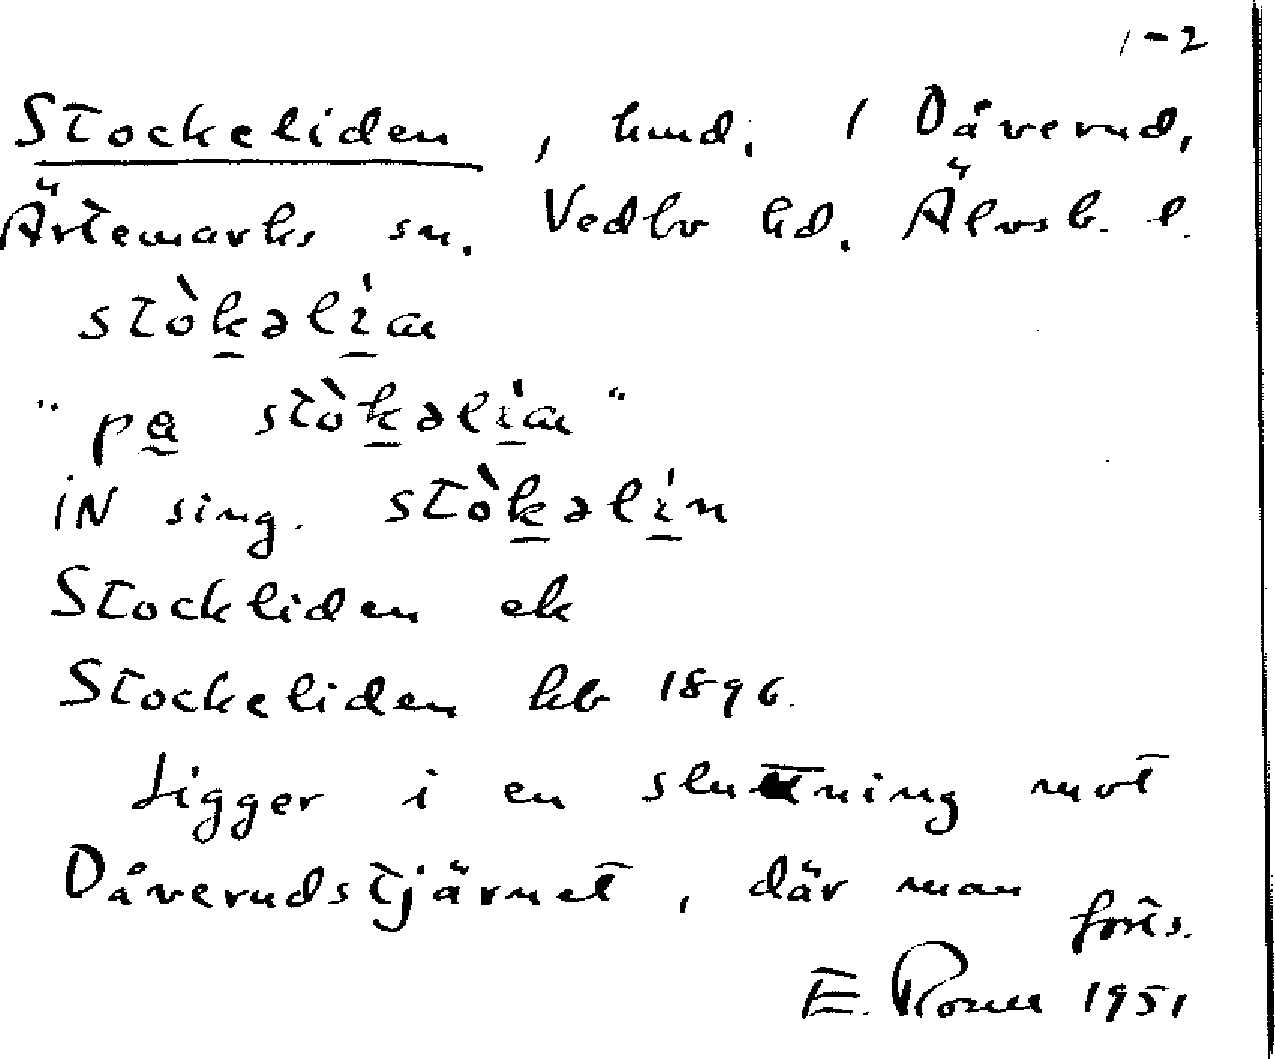 1-2
Stockeliden, hmd. 1 Dåverud,
Ärtemarks sn. Vedbo hd. Älvsb. l.
stòkəlíɑn
"pa stòkəlíɑn"
iN sing. stòkəlín
Stockliden ek
Stockeliden kb 1896.
Ligger i en sluttning mot
Dåverudstjärnet, där man
forts.
E. 1951